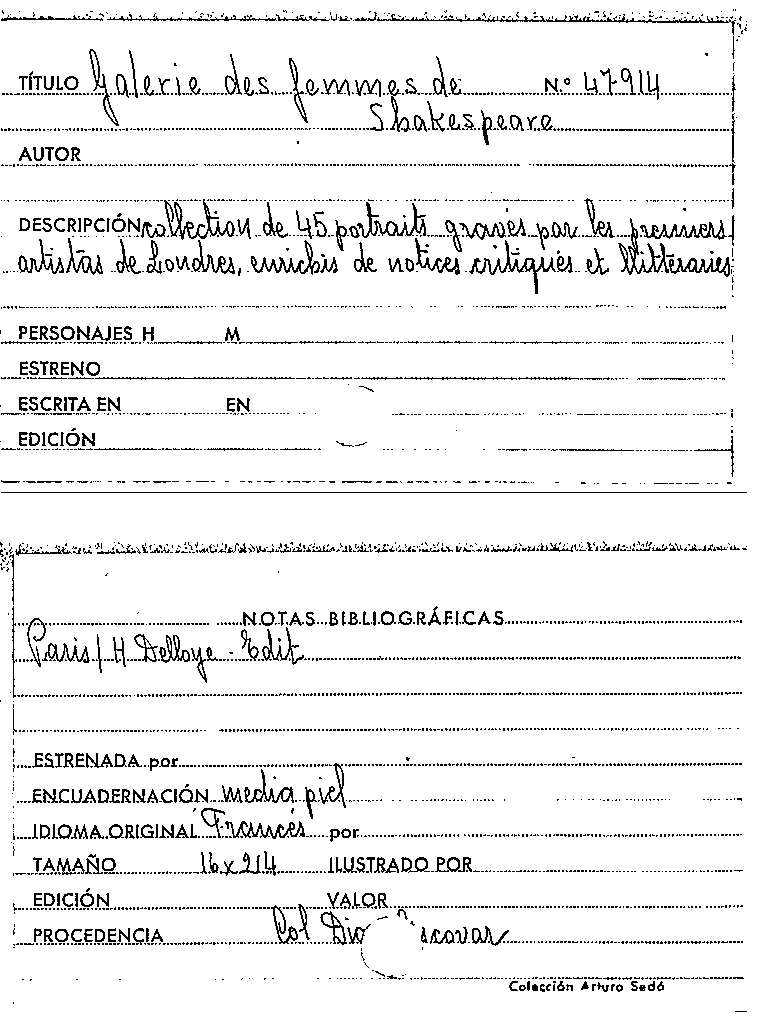 TÍTULO Galerie des femmes de N.º 47914
Shakespeare
AUTOR
DESCRIPCIÓN collection de 45 portraits gravés par les premiers
artistas de Londres, enrichis de notices critiques et llitteraries
PERSONAJES H M
ESTRENO
ESCRITA EN EN
EDICIÓN
NOTAS BIBLIOGRÁFICAS
Paris / H Delloye - Edit
ESTRENADA por
ENCUADERNACIÓN media piel
IDIOMA ORIGINAL Francés por
TAMAÑO ILUSTRADO POR
EDICIÓN VALOR
PROCEDENCIA Col
Colección Arturo Sedó